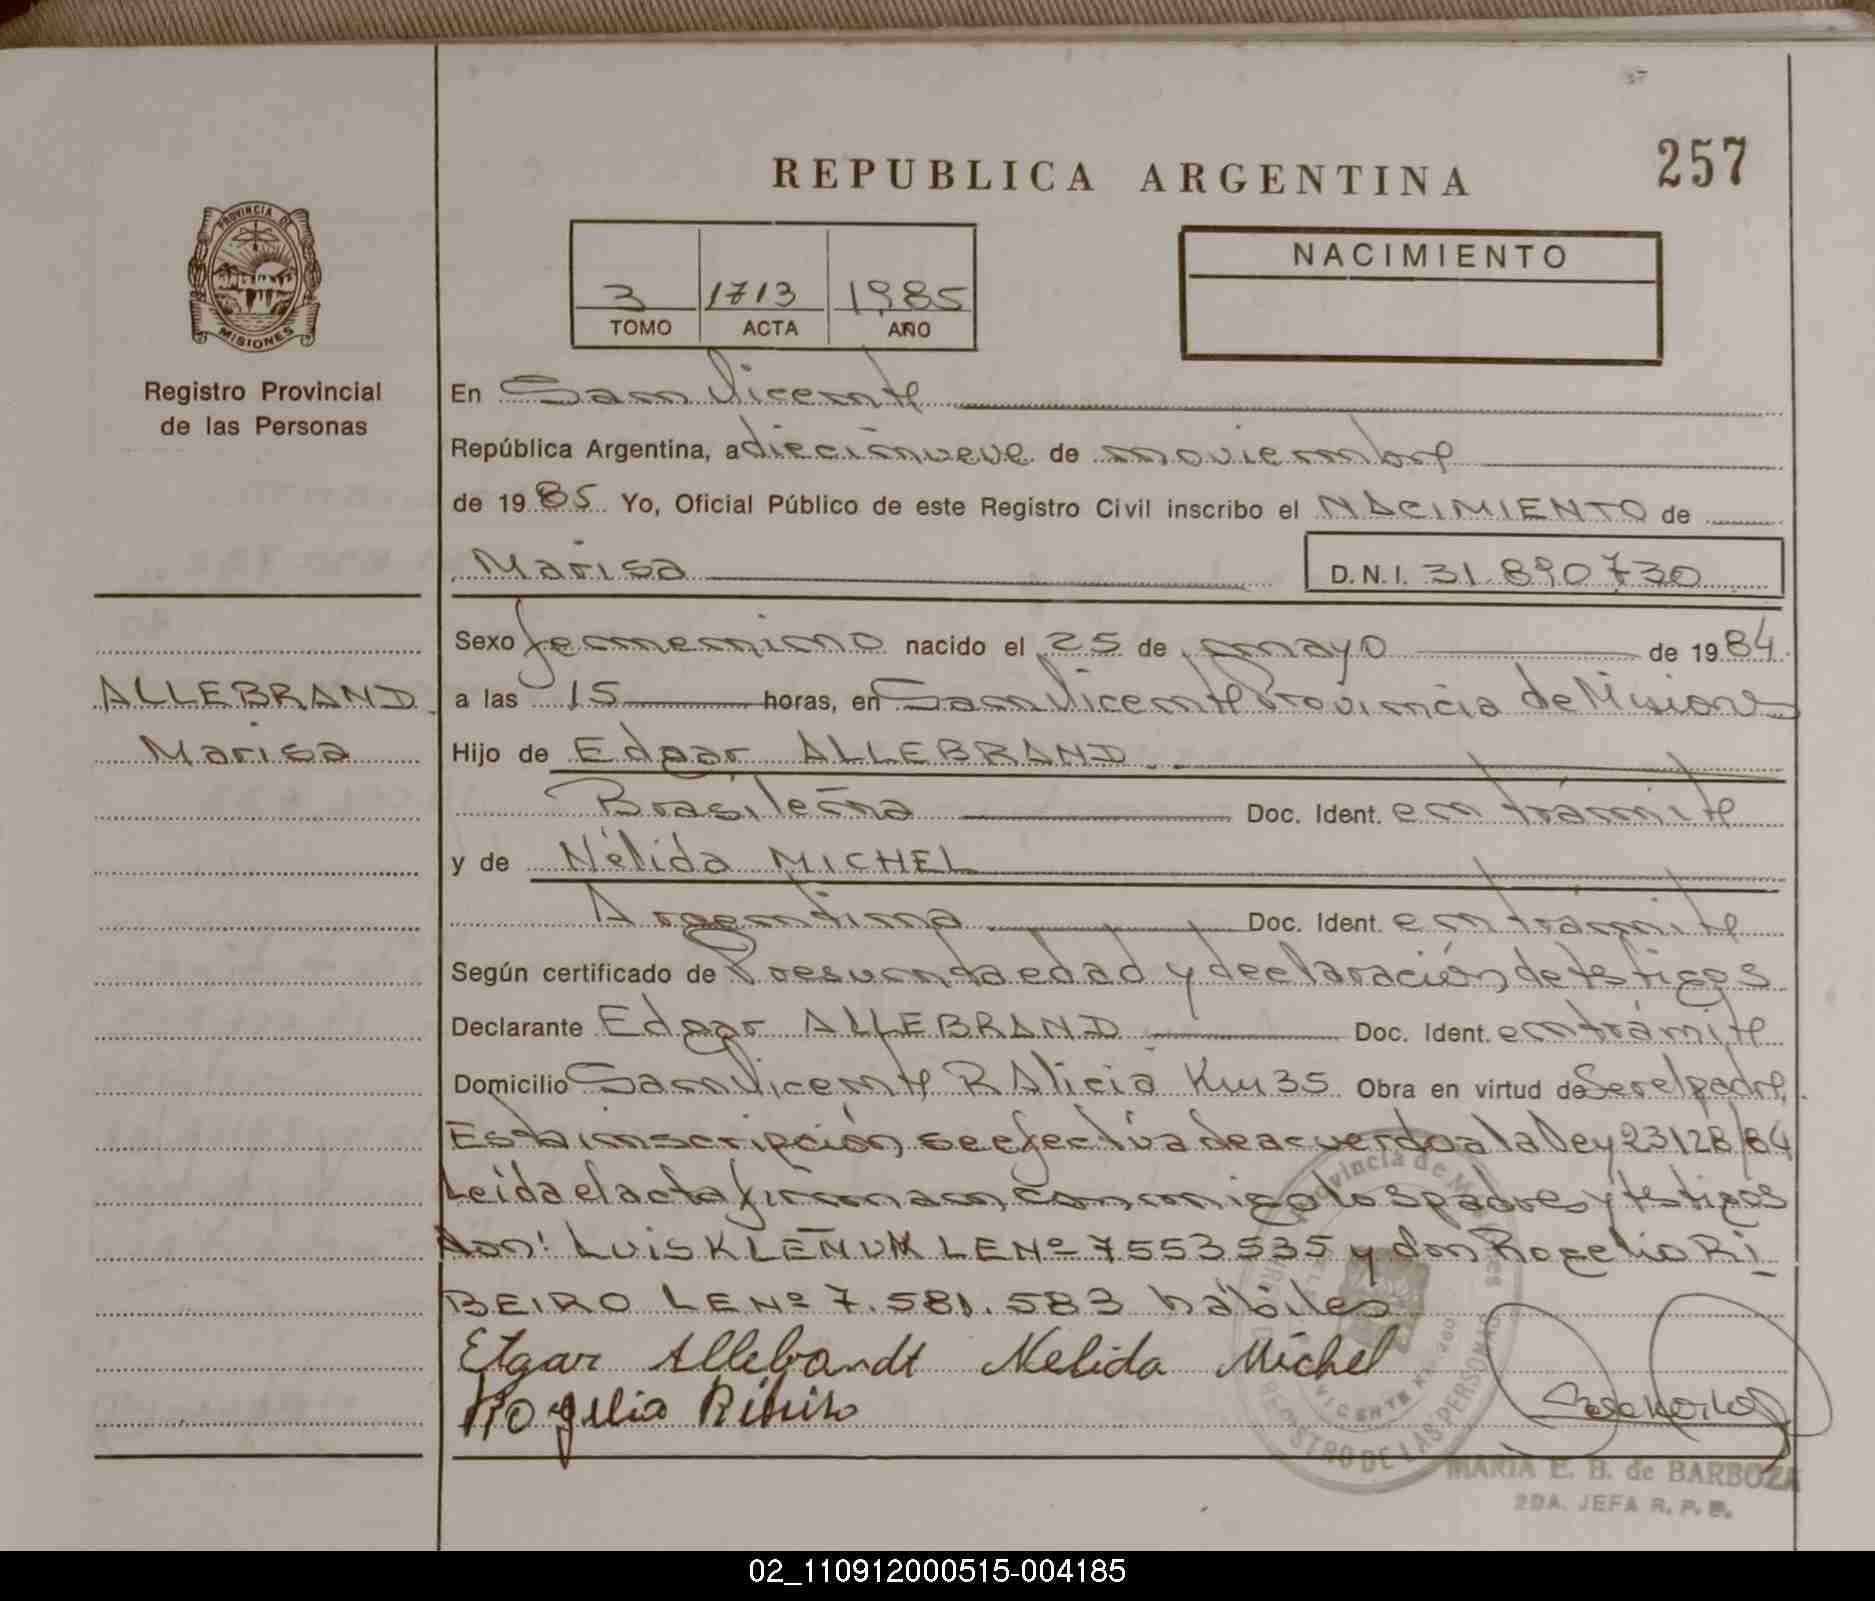 257
REPUBLICA ARGENTINA
PROVINCIA DE
MISIONES
Registro Provincial
de las Personas
3 1713 1985
TOMO ACTA AÑO
NACIMIENTO
En San Vicente
República Argentina, a diecinueve de noviembre
de 19 85 Yo, Oficial Público de este Registro Civil inscribo el NACIMIENTO de
Marisa D.N.I. 31.890730
ALLEBRAND
Marisa
Sexo femenino nacido el 25 de mayo de 19 84
a las 15 horas, en San Vicente Provincia de Misiones
Hijo de Edgar ALLEBRAND
Brasileña Doc. Ident. en trámite
y de Nélida MICHEL
Argentina Doc. Ident. en trámite
Según certificado de Presunta edad y declaración de testigos
Declarante Edgar ALLEBRAND Doc. Ident. en trámite
Domicilio San Vicente R Alicia Km 35 Obra en virtud de Ser el padre.
Esta inscripción se efectúa de acuerdo a la Ley 23128/84
Leída el acta firman conmigo los padres y testigos
Don: LUIS LE Nº 7553535 y don Rogelio RI
BEIRO LE Nº 7.581.583 hábiles
Etgar Allebrandt Nelida Michel
Rogelio Ribeiro
Provincia de
VICENTE
REGISTRO DE LAS PERSONAS
MARIA E. B. de BARBOZA
2DA. JEFA R. P. P.
02_110912000515-004185